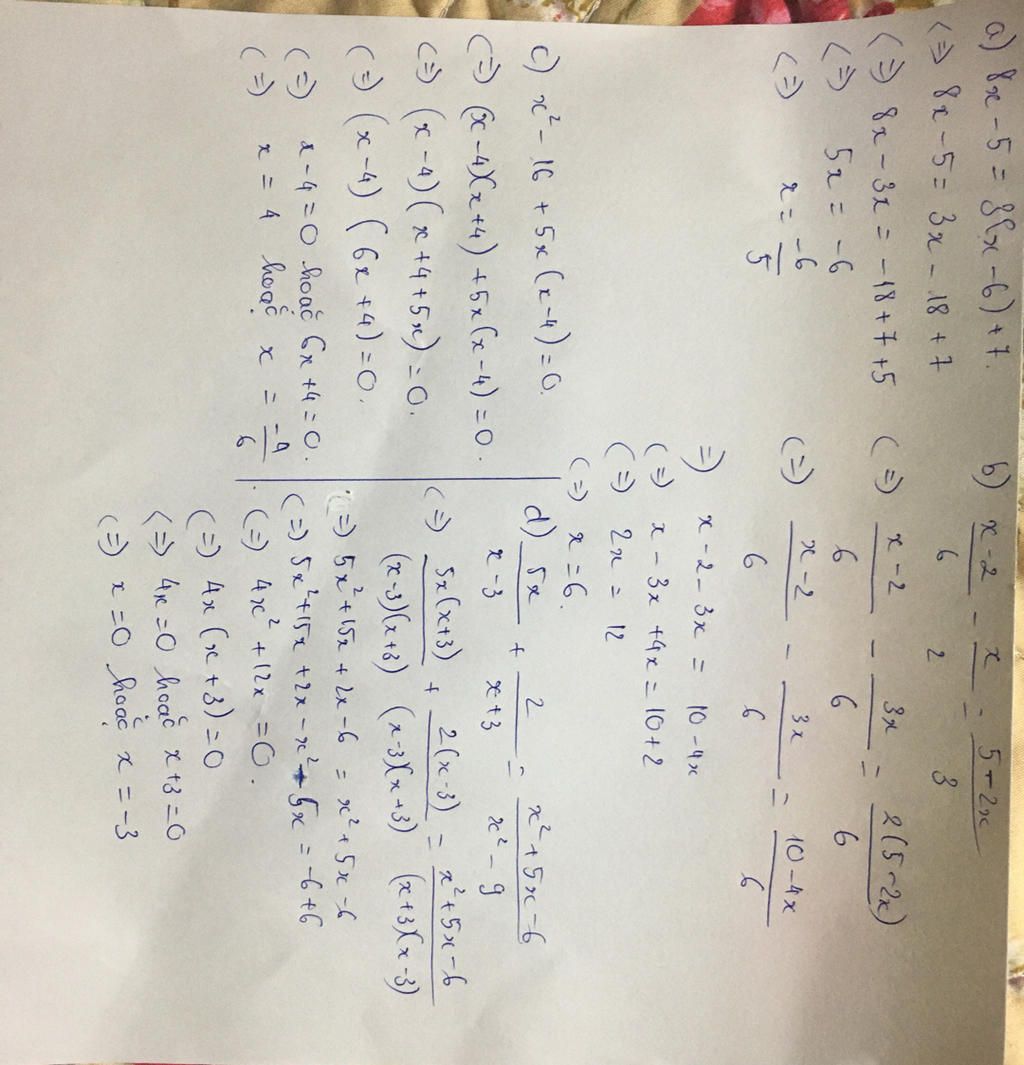 a) 8x - 5 = 3(x - 6) + 7.
<=> 8x - 5 = 3x - 18 + 7
<=> 8x - 3x = -18 + 7 + 5
<=> 5x = -6
<=> x = -6/5
b) x-2/6 - x/2 = 5-2x/3
<=> x-2/6 - 3x/6 = 2(5-2x)/6
<=> x-2/6 - 3x/6 = 10-4x/6
=> x - 2 - 3x = 10 - 4x
<=> x - 3x + 4x = 10 + 2
<=> 2x = 12
<=> x = 6.
c) x² - 16 + 5x(x-4) = 0.
<=> (x-4)(x+4) + 5x(x-4) = 0.
<=> (x-4)(x+4+5x) = 0.
<=> (x-4)(6x+4) = 0.
<=> x-4 = 0 hoặc 6x+4 = 0.
<=> x = 4 hoặc x = -4/6.
d) 5x/x-3 + 2/x+3 = x²+5x-6/x²-9
<=> 5x(x+3)/(x-3)(x+3) + 2(x-3)/(x-3)(x+3) = x²+5x-6/(x+3)(x-3)
<=> 5x²+15x+2x-6 = x²+5x-6
<=> 5x²+15x+2x-x²-5x = -6+6
<=> 4x²+12x = 0.
<=> 4x(x+3) = 0
<=> 4x = 0 hoặc x+3 = 0
<=> x = 0 hoặc x = -3